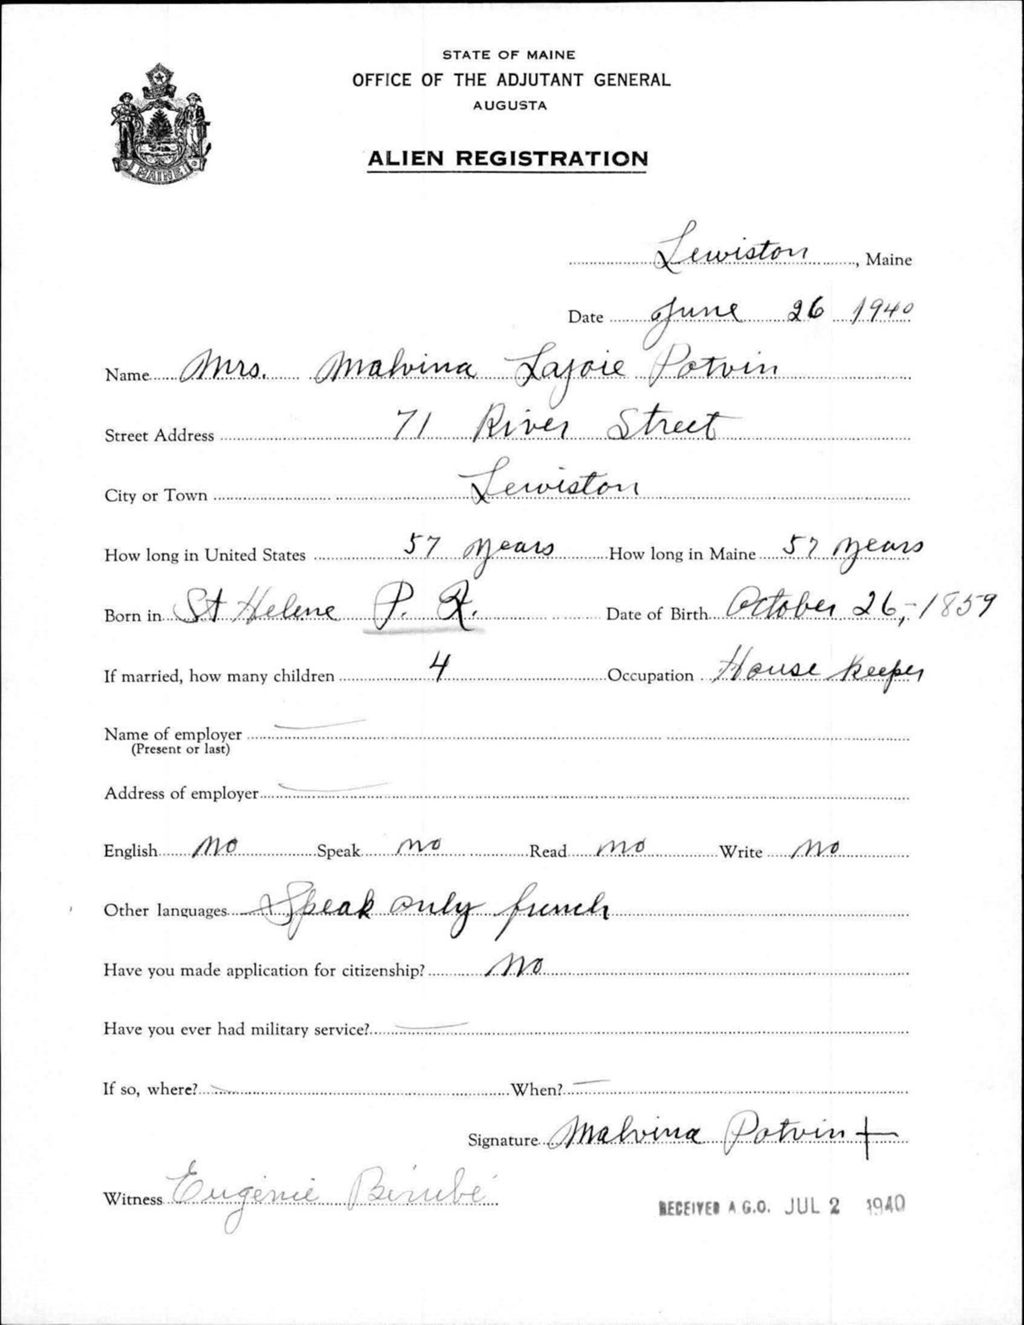 STATE OF MAINE
OFFICE OF THE ADJUTANT GENERAL
AUGUSTA
ALIEN REGISTRATION
MAINE
Lewiston, Maine
Date June 26 1940
Name Mrs. Malvina Lajoie Potvin
Street Address 71 River Street
City or Town Lewiston
How long in United States 57 years How long in Maine 57 years
Born in St Helene P. Q. Date of Birth October 26,-1859
If married, how many children 4 Occupation House keeper
Name of employer
(Present or last)
Address of employer
English no Speak no Read no Write no
Other languages Speak only french
Have you made application for citizenship? No
Have you ever had military service?
If so, where? When?
Signature Malvina Potvin +
Witness Eugénie Bérubé
RECEIVED A.G.O. JUL 2 1940